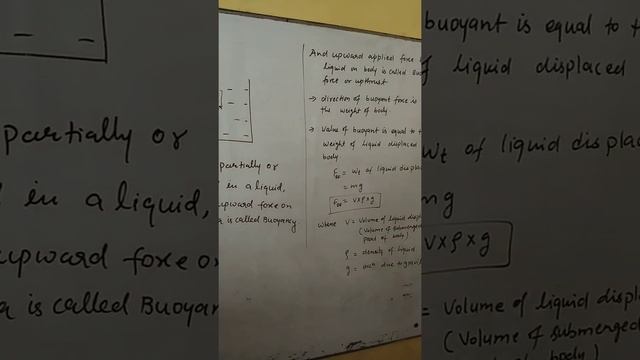 partially or
in a liquid,
upward foxe on
is called Buoyancy
And upward applied force
liquid on body is called
force or upthrust
→ direction of buoyant force is
the weight of body
→ value of buoyant is equal to
weight of liquid displaced
body
= wt of liquid displac
= mg
= V×ρ×g
where V = Volume of liquid displ
(Volume of submerged
part of body)
ρ = density of liquid
g = accn due to gravi
partially or
in a liquid,
upward foxe on
is called Buoyancy
buoyant is equal to
of liquid displaced
Wt of liquid displac
mg
V×ρ×g
= Volume of liquid displ
(Volume of submerged
body)